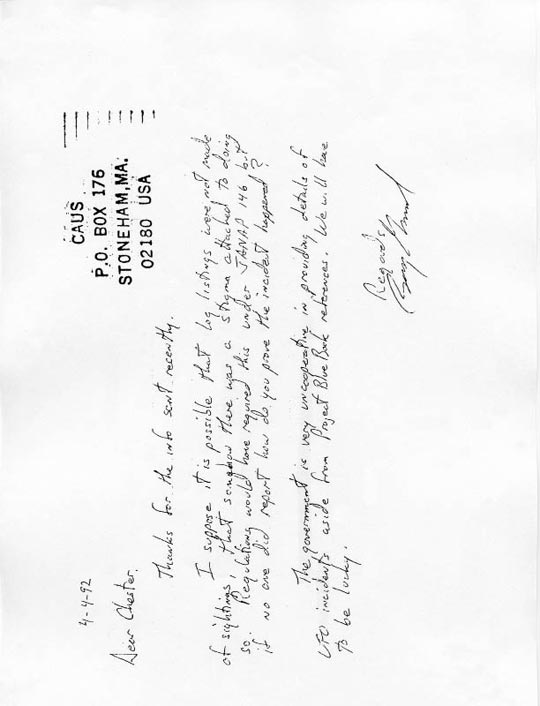 CAUS
P.O. BOX 176
STONEHAM, MA.
02180 USA
4-4-92
Dear Chester,
Thanks for the info sent recently.
I suppose it is possible that log listings were not made
of sightings, that somehow there was a stigma attached to doing
so. Regulations would have required this under JANAP 146 but
if no one did report how do you prove the incident happened?
The government is very uncooperative in providing details of
UFO incidents aside from Project Blue Book references. We will have
to be lucky.
Regards,